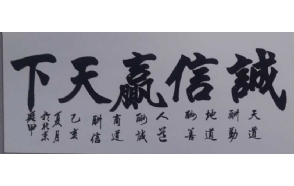 誠信贏天下
天道
酬勤
地道
酬善
人道
酬誠
商道
酬信
乙亥
夏月
於北京